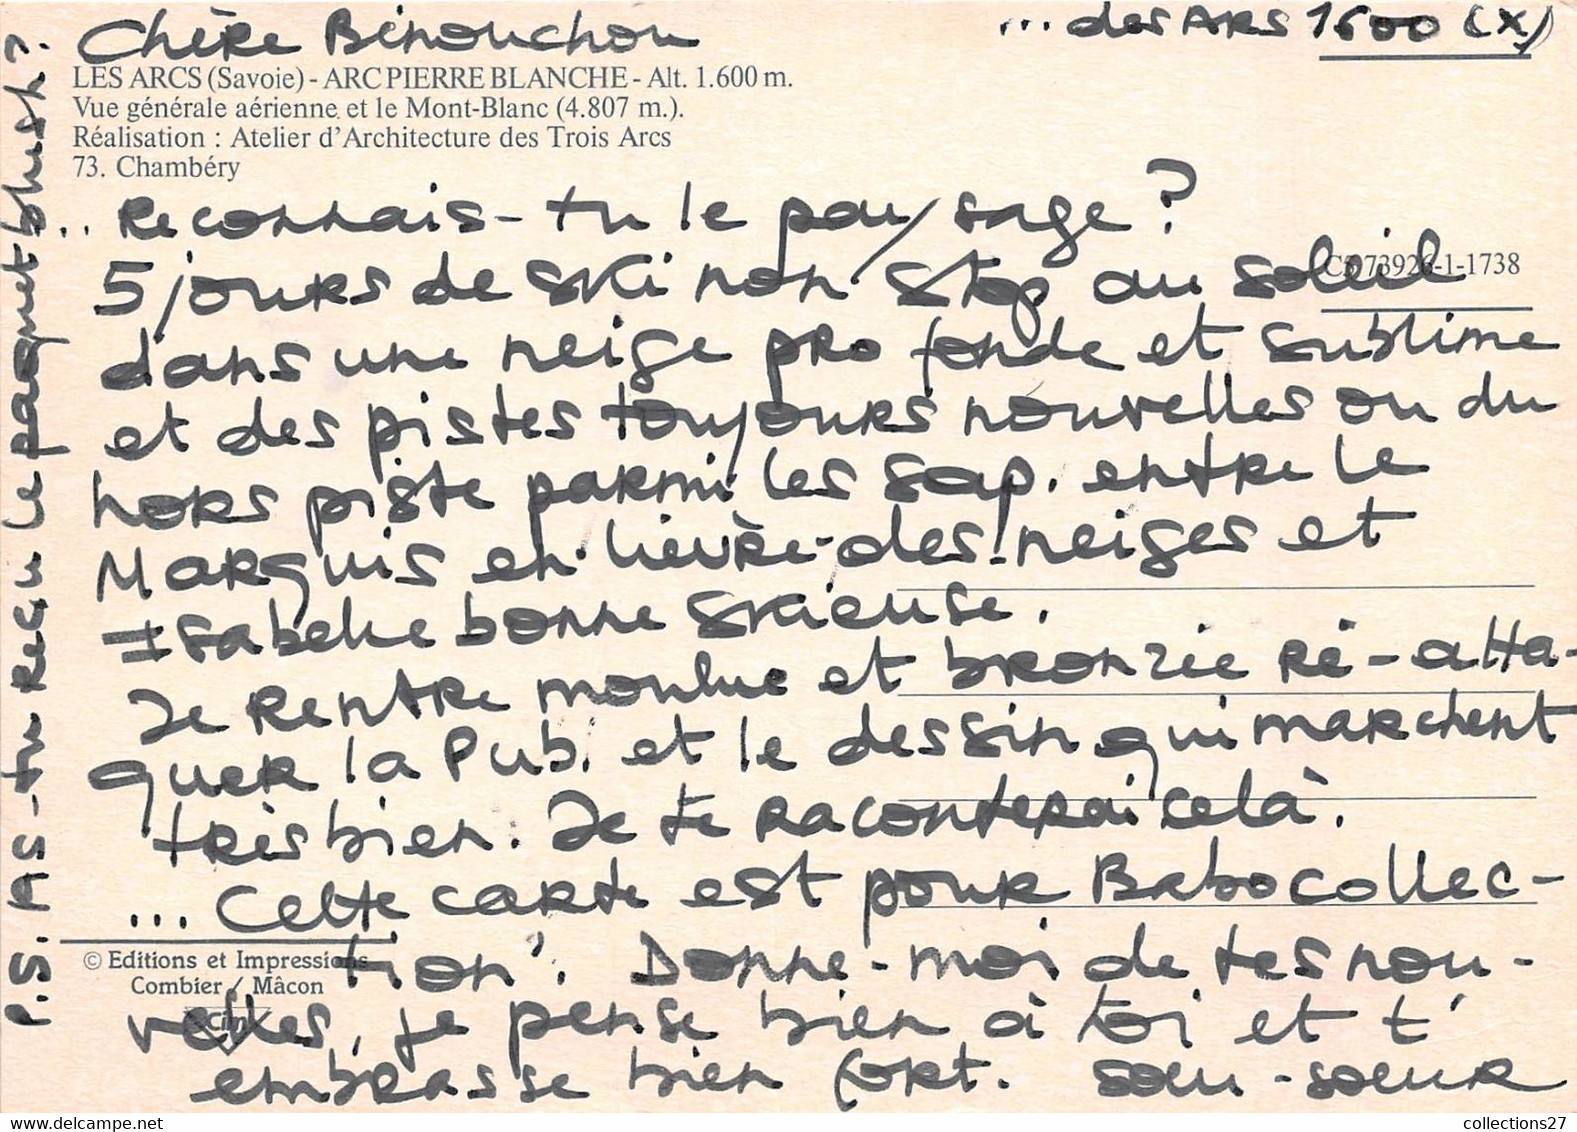 ... des ARS 1600 (X)
Chère Bénouchou
LES ARCS (Savoie) - ARC PIERRE BLANCHE - Alt. 1.600 m.
Vue générale aérienne et le Mont-Blanc (4.807 m.).
Réalisation : Atelier d'Architecture des Trois Arcs
73. Chambéry
.. Reconnais-tu le paysage ?
CP 73926-1-1738
5 jours de ski non stop au soleil
dans une neige profonde et sublime
et des pistes toujours nouvelles ou du
hors piste parmi les sap. entre le
Marquis en lièvre-des-neiges et
Isabelle bonne skieuse.
Je rentre moulue et bronzée ré-atta-
quer la Pub. et le dessin qui marchent
très bien. Je te raconterai celà.
... Cette carte est pour Babo collec-
tion. Donne-moi de tes nou-
© Editions et Impressions
Combier / Mâcon
Cim
velles, je pense bien à toi et t'
embrasse bien fort. sou-soeur
P.S. AS-tu reçu le paquet blush ?
collections27